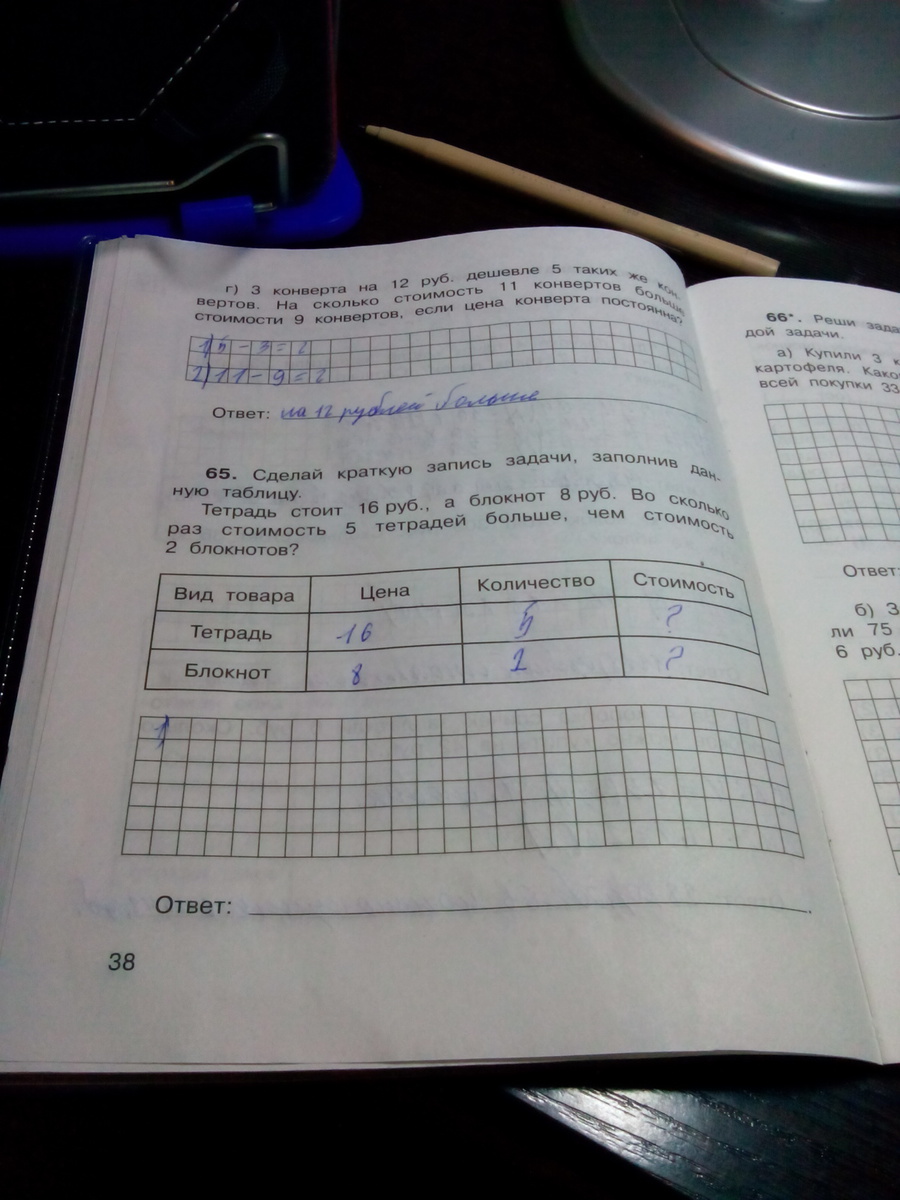 г) 3 конверта на 12 руб. дешевле 5 таких же кон-
вертов. На сколько стоимость 11 конвертов больше
стоимости 9 конвертов, если цена конверта постоянна?
1) 5 - 3 = 2
2) 11 - 9 = 2
Ответ: на 12 рублей больше
65. Сделай краткую запись задачи, заполнив дан-
ную таблицу.
Тетрадь стоит 16 руб., а блокнот 8 руб. Во сколько
раз стоимость 5 тетрадей больше, чем стоимость
2 блокнотов?
Вид товара Цена Количество Стоимость
Тетрадь 16 5 ?
Блокнот 8 2 ?
1)
Ответ:
38
66*. Реши
дой задачи.
а) Купили 3
картофеля.
всей покупки 33
Ответ:
б)
ли 75
6 руб.